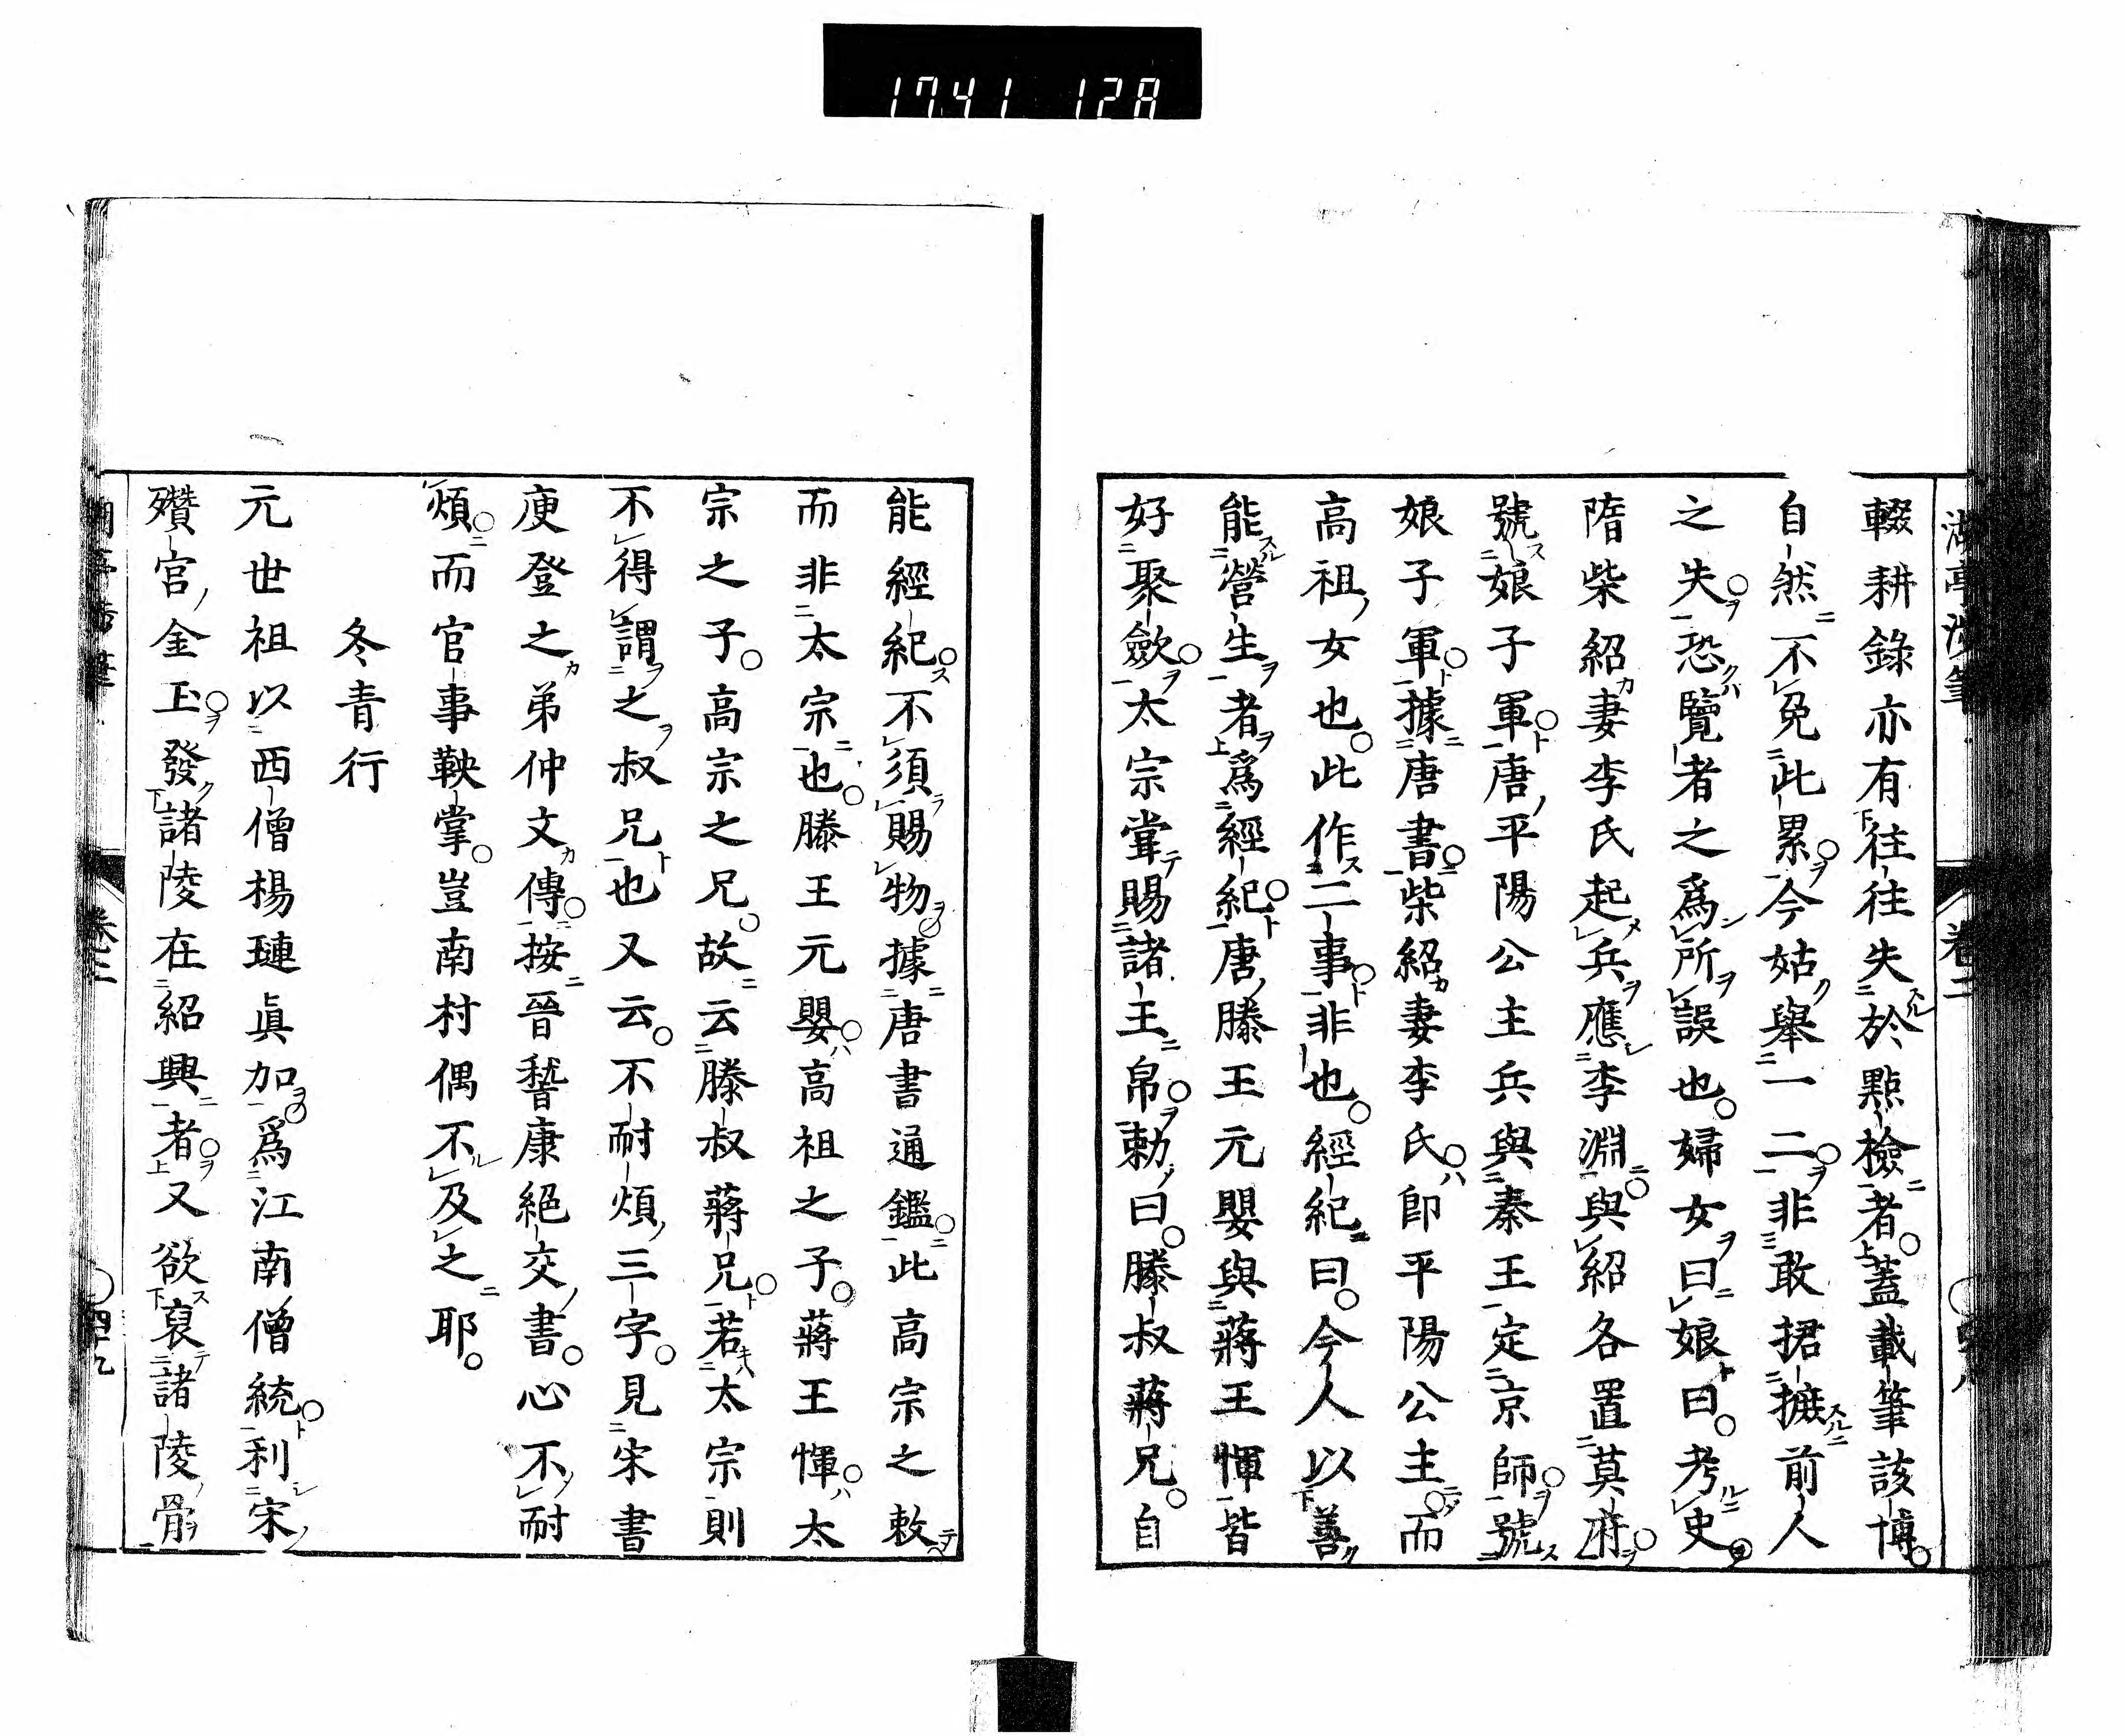 1741 128
湖亭涉筆 卷二
輟耕錄亦有往往失於點檢者蓋載筆該博
自然不免此累今姑舉一二非敢捃摭前人
之失恐覽者之爲所誤也婦女曰娘曰考史
隋柴紹妻李氏起兵應李淵與紹各置莫府
號娘子軍唐平陽公主兵與秦王定京師號
娘子軍據唐書柴紹妻李氏卽平陽公主而
高祖女也此作二事非也經紀曰今人以善
能營生者爲經紀唐滕王元嬰與蔣王惲皆
好聚歛太宗甞賜諸王帛勅曰滕叔蔣兄自
能經紀不須賜物據唐書通鑑此高宗之敕
而非太宗也滕王元嬰高祖之子蔣王惲太
宗之子高宗之兄故云滕叔蔣兄若太宗則
不得謂之叔兄也又云不耐煩三字見宋書
庾登之弟仲文傳按晉嵆康絕交書心不耐
煩而官事鞅掌豈南村偶不及之耶
冬青行
元世祖以西僧楊璉眞加爲江南僧統利宋
殯官金玉發諸陵在紹興者又欲裒諸陵骨
卷二 四十九